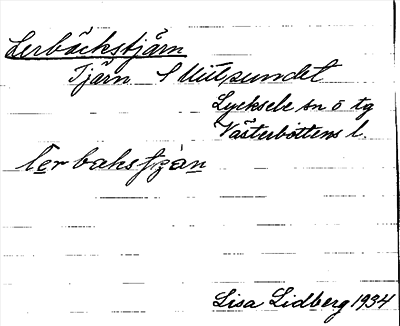 Lerbäckstjärn
Tjärn S
Lycksele sn o tg
Västerbottens l.
lerbakstjän
Lisa Lidberg 1934